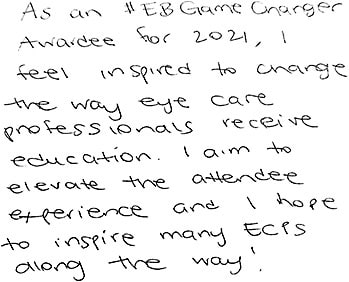 As an #EBGameChanger
Awardee for 2021, I
feel inspired to change
the way eye care
professionals receive
education. I aim to
elevate the attendee
experience and I hope
to inspire many ECPs
along the way!